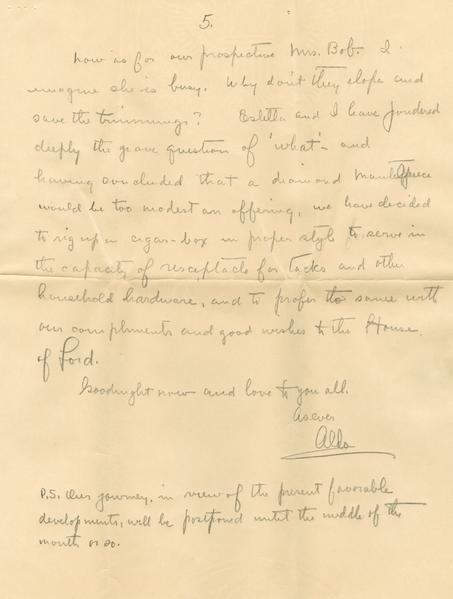 5.
Now as for our prospective Mrs. Bob. I
imagine she is busy. Why don't they elope and
save the trimmings? Estella and I have pondered
deeply the grave question of 'what' - and
having concluded that a diamond mantelpiece
would be too modest an offering, we have decided
to rig up a cigar-box in proper style to serve in
the capacity of receptacle for tacks and other
household hardware, and to profer the same with
our compliments and good wishes to the House
of Ford.
Goodnight now and love to you all.
As ever
P.S. Our journey, in view of the present favorable
developments, will be postponed until the middle of the
month or so.